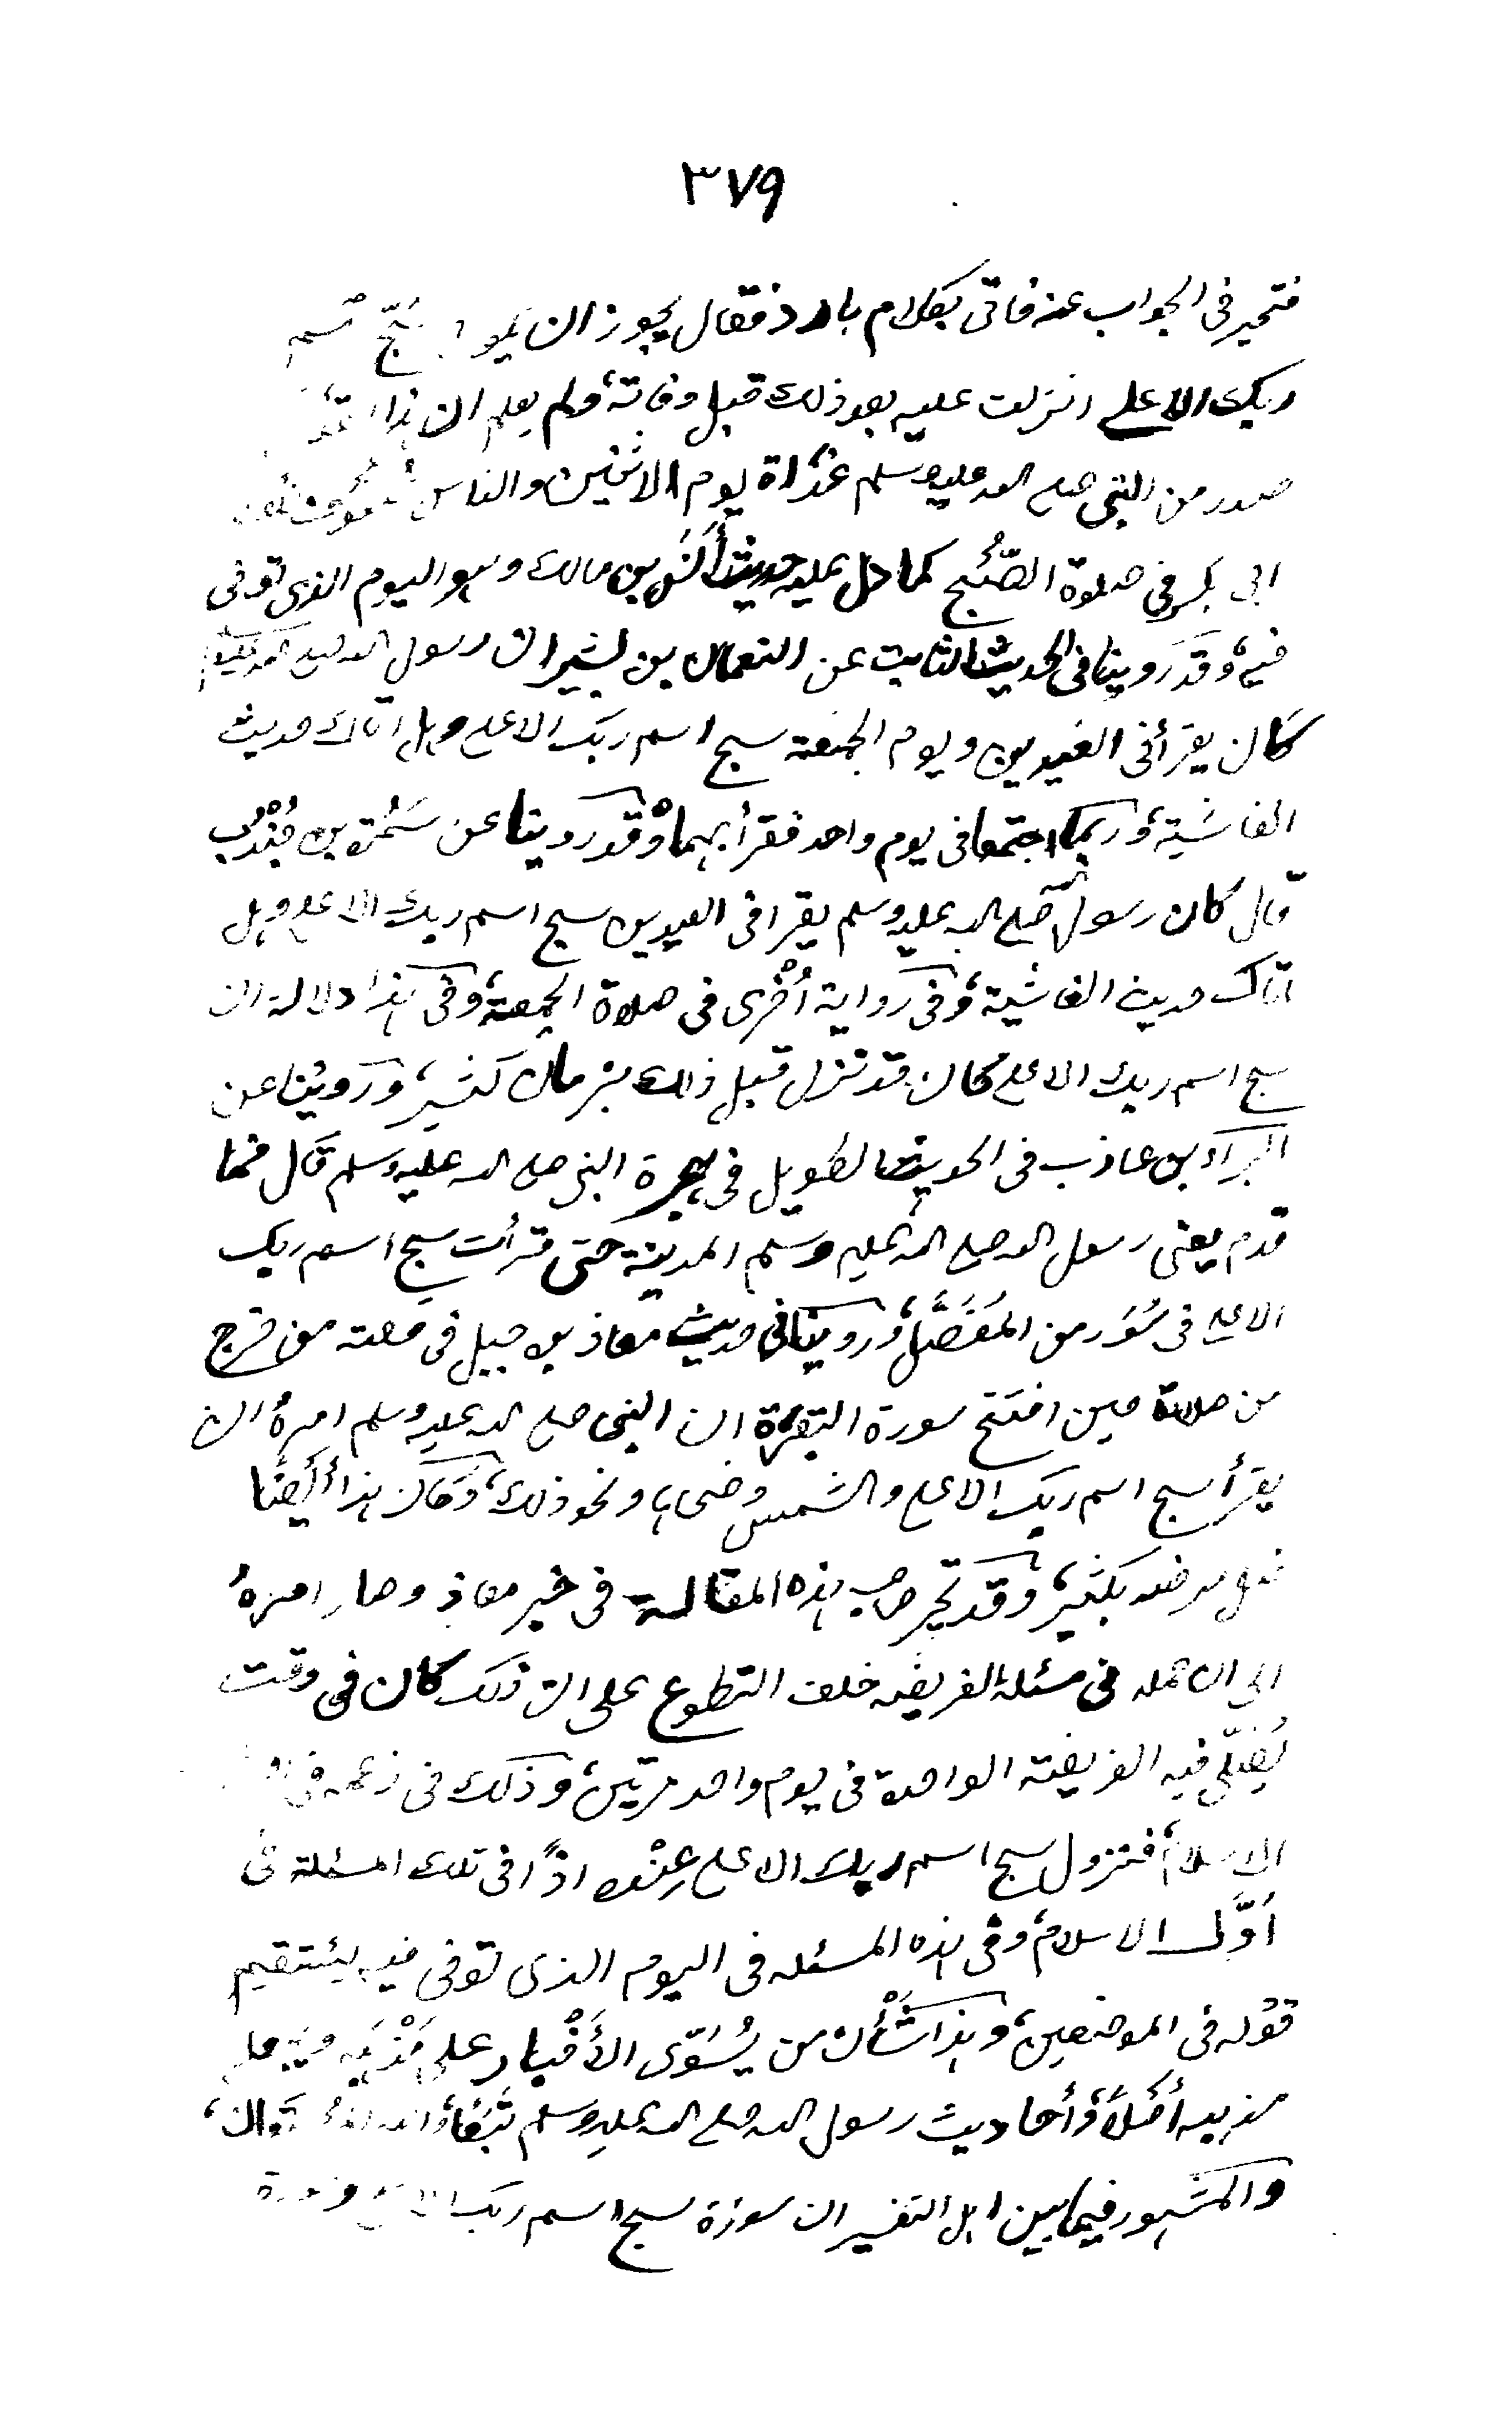 ٣٧٩
فتحير فى الجواب عنه فاتى بكلام بارد فقال يجوز ان يكون سبح اسم
ربك الاعلے انزلت عليه بعد ذلك قبل وفاته، ولم يعلم ان هذا
صدر من النبى صلے الله عليه وسلم غداة يوم الاثنين والناس صفوف خلف
ابى بكر فى صلوة الصُّبْح كما دل عليه حديث أنَس بن مالك وهو اليوم الذى توفى
فيه، وقد روينا فى الحديث الثابت عن النعمان بن بشير ان رسول الله صلے الله عليه وسلم
كان يقرأ فى العيدين ويوم الجمعة سبح اسم ربك الاعلے وهل اتاك حديث
الغاشية، وربما اجتمعا فى يوم واحد فقرأ بهما، وقد روينا عن سَمُرة بن جُنْدُب
قال كان رسول الله صلے الله عليه وسلم يقرا فى العيدين سبح اسم ربك الاعلے وهل
اتاك حديث الغاشية، وفى رواية أُخْرى فى صلاة الجمعة، وفى هذا دلالة ان
سبح اسم ربك الاعلے كان قد نزل قبل ذلك بزمان كثير، وروينا عن
البراء بن عازب فى الحديث الطويل فى هجرة النبى صلے الله عليه وسلم قال فما
قدم يعنى رسول الله صلے الله عليه وسلم المدينة حتى قرأت سبح اسم ربك
الاعلے فى سُوَر من المُفَصَّل، وروينا فى حديث معاذ بن جبل فى قصة من خرج
من صلاته حين افتتح سورة البقرة ان النبى صلے الله عليه وسلم امره ان
يقرأ سبح اسم ربك الاعلے والشمس وضحاها ونحو ذلك، وكان هذا أيضًا
قبل مرضه بكثير، وقد تحير صاحب هذه المقالة فى خبر معاذ وصار امره
الى ان حمله فى مسئلة الفريضة خلف التطوع على ان ذلك كان فى وقت
يُصَلّى فيه الفريضة الواحدة فى يوم واحد مرتين، وذلك فى زعمه فى
الاسلام، فنزول سبح اسم ربك الاعلے عِنْده اذًا فى تلك المسئلة فى
أوَّل الاسلام، وفى هذه المسئله فى اليوم الذى توفى فيه ليستقيم
قوله فى الموضعين، وهذا شَأْن من يُسَوّى الأَخْبار على مَذْهَبه ويجعل
مذهبه أصْلًا، وأحاديث رسول الله صلے الله عليه وسلم تَبَعًا، والله المستعان،
والمشهور فيما بين اهل التفسير ان سورة سبح اسم ربك الاعلے وسورة